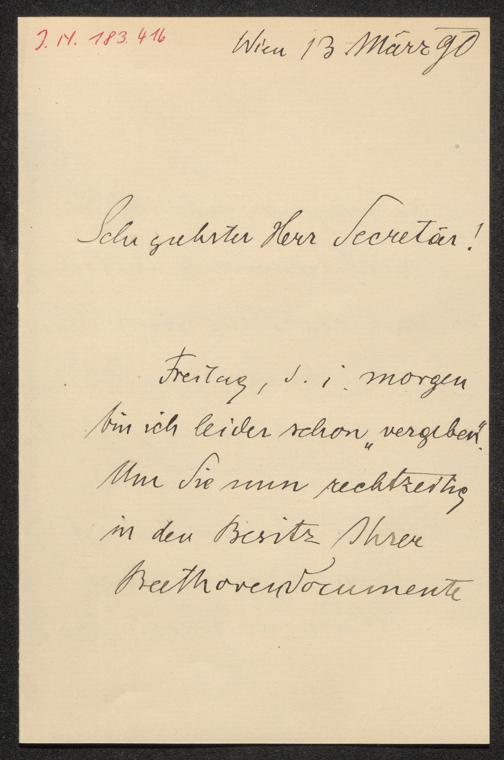 J. N. 183.416
Wien 13 März 90
Sehr geehrter Herr Secretär!
Freitag, d. i. morgen
bin ich leider schon „vergeben“.
Um Sie nun rechtzeitig
in den Besitz Ihrer
Beethovendocumente